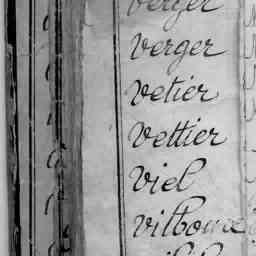 verger
verger
vetier
vettier
viel
vilbourie